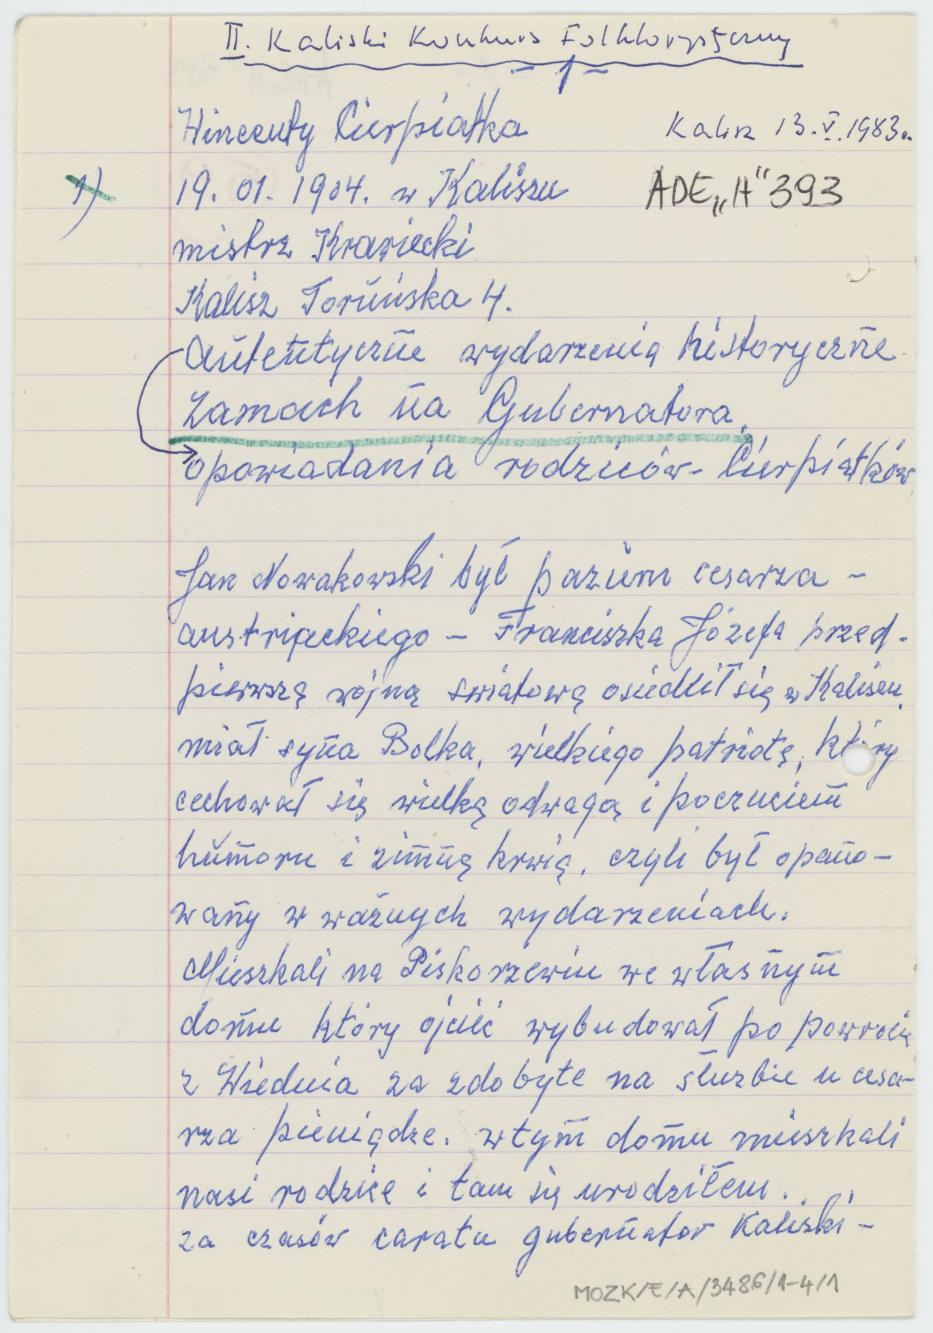 II. Kaliski Konkurs Folklorystyczny
- 1 -
Wincenty Cierpiatka
Kalisz 13.V.1983r.
1)
19. 01. 1904. w Kaliszu
ADE „H” 393
mistrz Krawiecki
Kalisz Toruńska 4.
Autentyczne wydarzenia historyczne
Zamach na Gubernatora.
opowiadania rodziców - Cierpiatków
Jan Nowakowski był paziem cesarza -
austriackiego - Franciszka Józefa przed -
pierwszą wojną swiatową osiedlił się w Kaliszu,
miał syna Bolka, wielkiego patriotę, który
cechował się wielką odwagą i poczuciem
humoru i zimną krwią, czyli był opano-
wany w ważnych wydarzeniach.
Mieszkali na Piskorzewiu we własnym
domu który ojciec wybudował po powrocie
z Wiednia za zdobyte na służbie u cesa-
rza pieniądze. w tym domu mieszkali
nasi rodzice i tam się urodziłem.
za czasów caratu gubernator Kaliski -
MOZK/E/A/3486/1-4/1